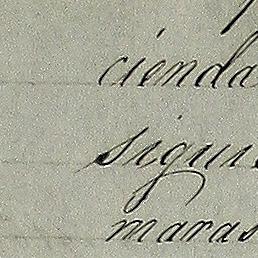 cienda
siguis
maras